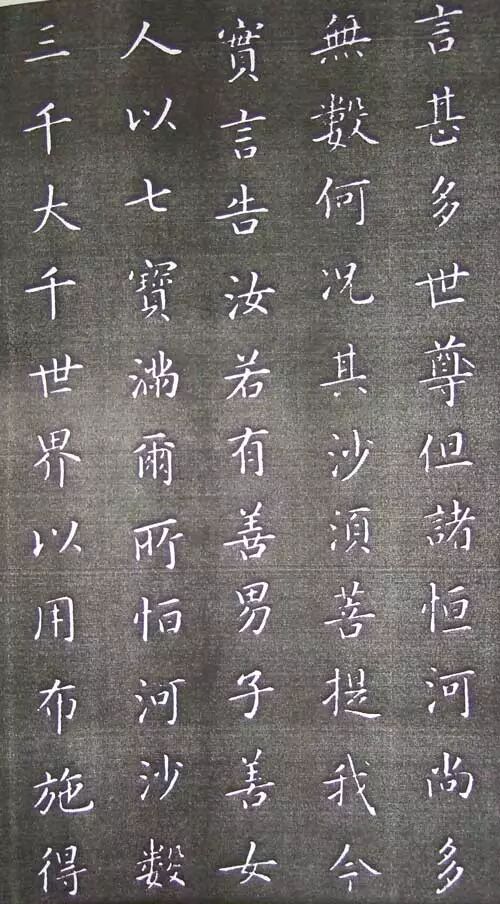 言甚多世尊但諸恒河尚多
無數何况其沙須菩提我今
實言告汝若有善男子善女
人以七寶滿爾所恒河沙數
三千大千世界以用布施得